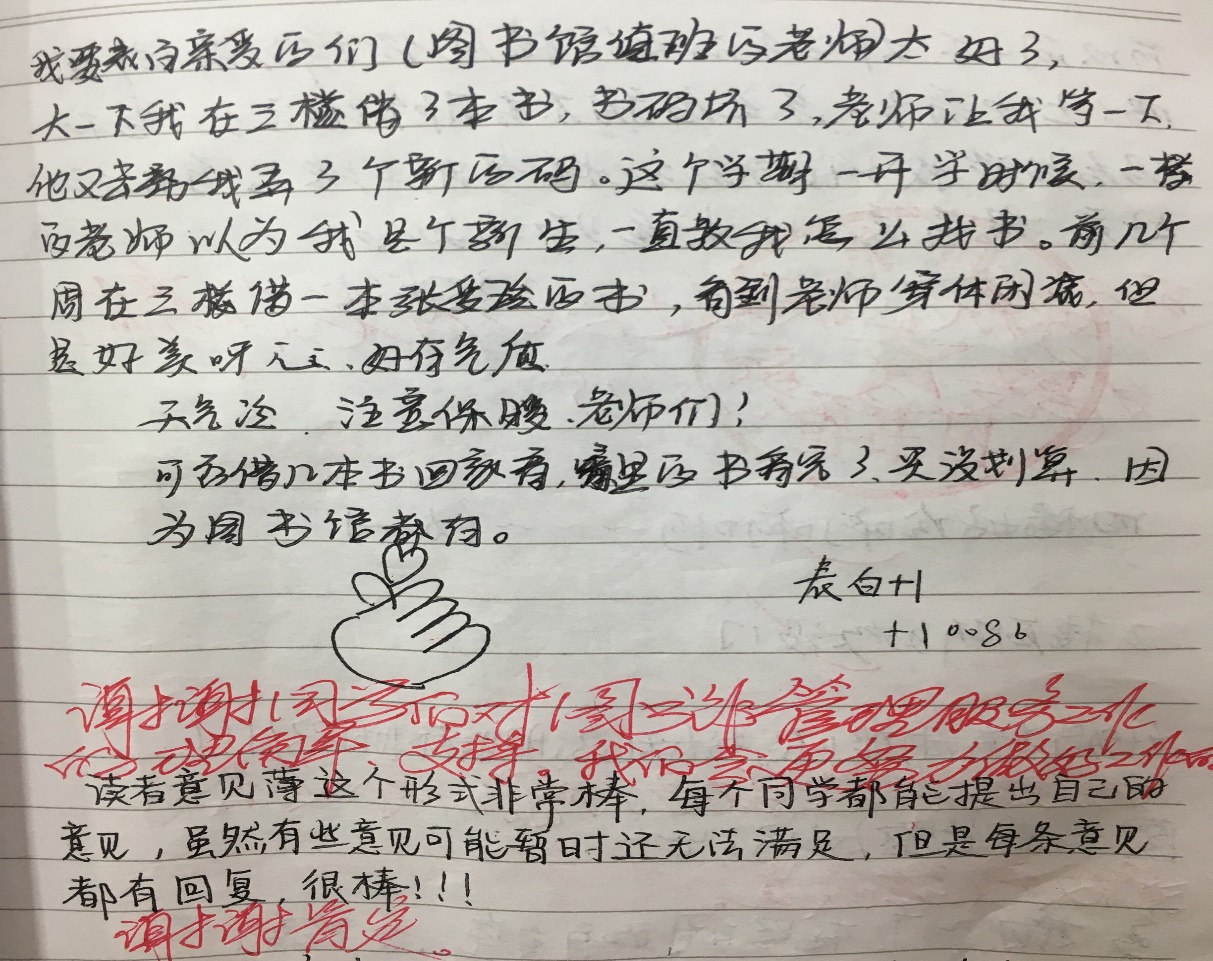 我要表白亲爱的们(图书馆值班的老师)太好了,
大一下我在三楼借了本书,书码坏了,老师让我等一下.
他又去帮我弄了个新的码。这个学期一开学时候,一楼
的老师以为我是个新生,一直教我怎么找书。前几个
周在三楼借一本张爱玲的书,看到老师穿休闲,但
是好美呀、好有气质
天气冷.注意保暖、老师们!
可否借几本书回家看,的书看完了、买没划算.因
为图书馆都有。
表白+1
+10086
谢谢同学们对图书馆管理服务工作
的支持。我们会更努力做好工作的
读者意见薄这个形式非常棒,每个同学都能提出自己的
意见,虽然有些意见可能暂时还无法满足,但是每条意见
都有回复,很棒!!!
谢谢肯定。